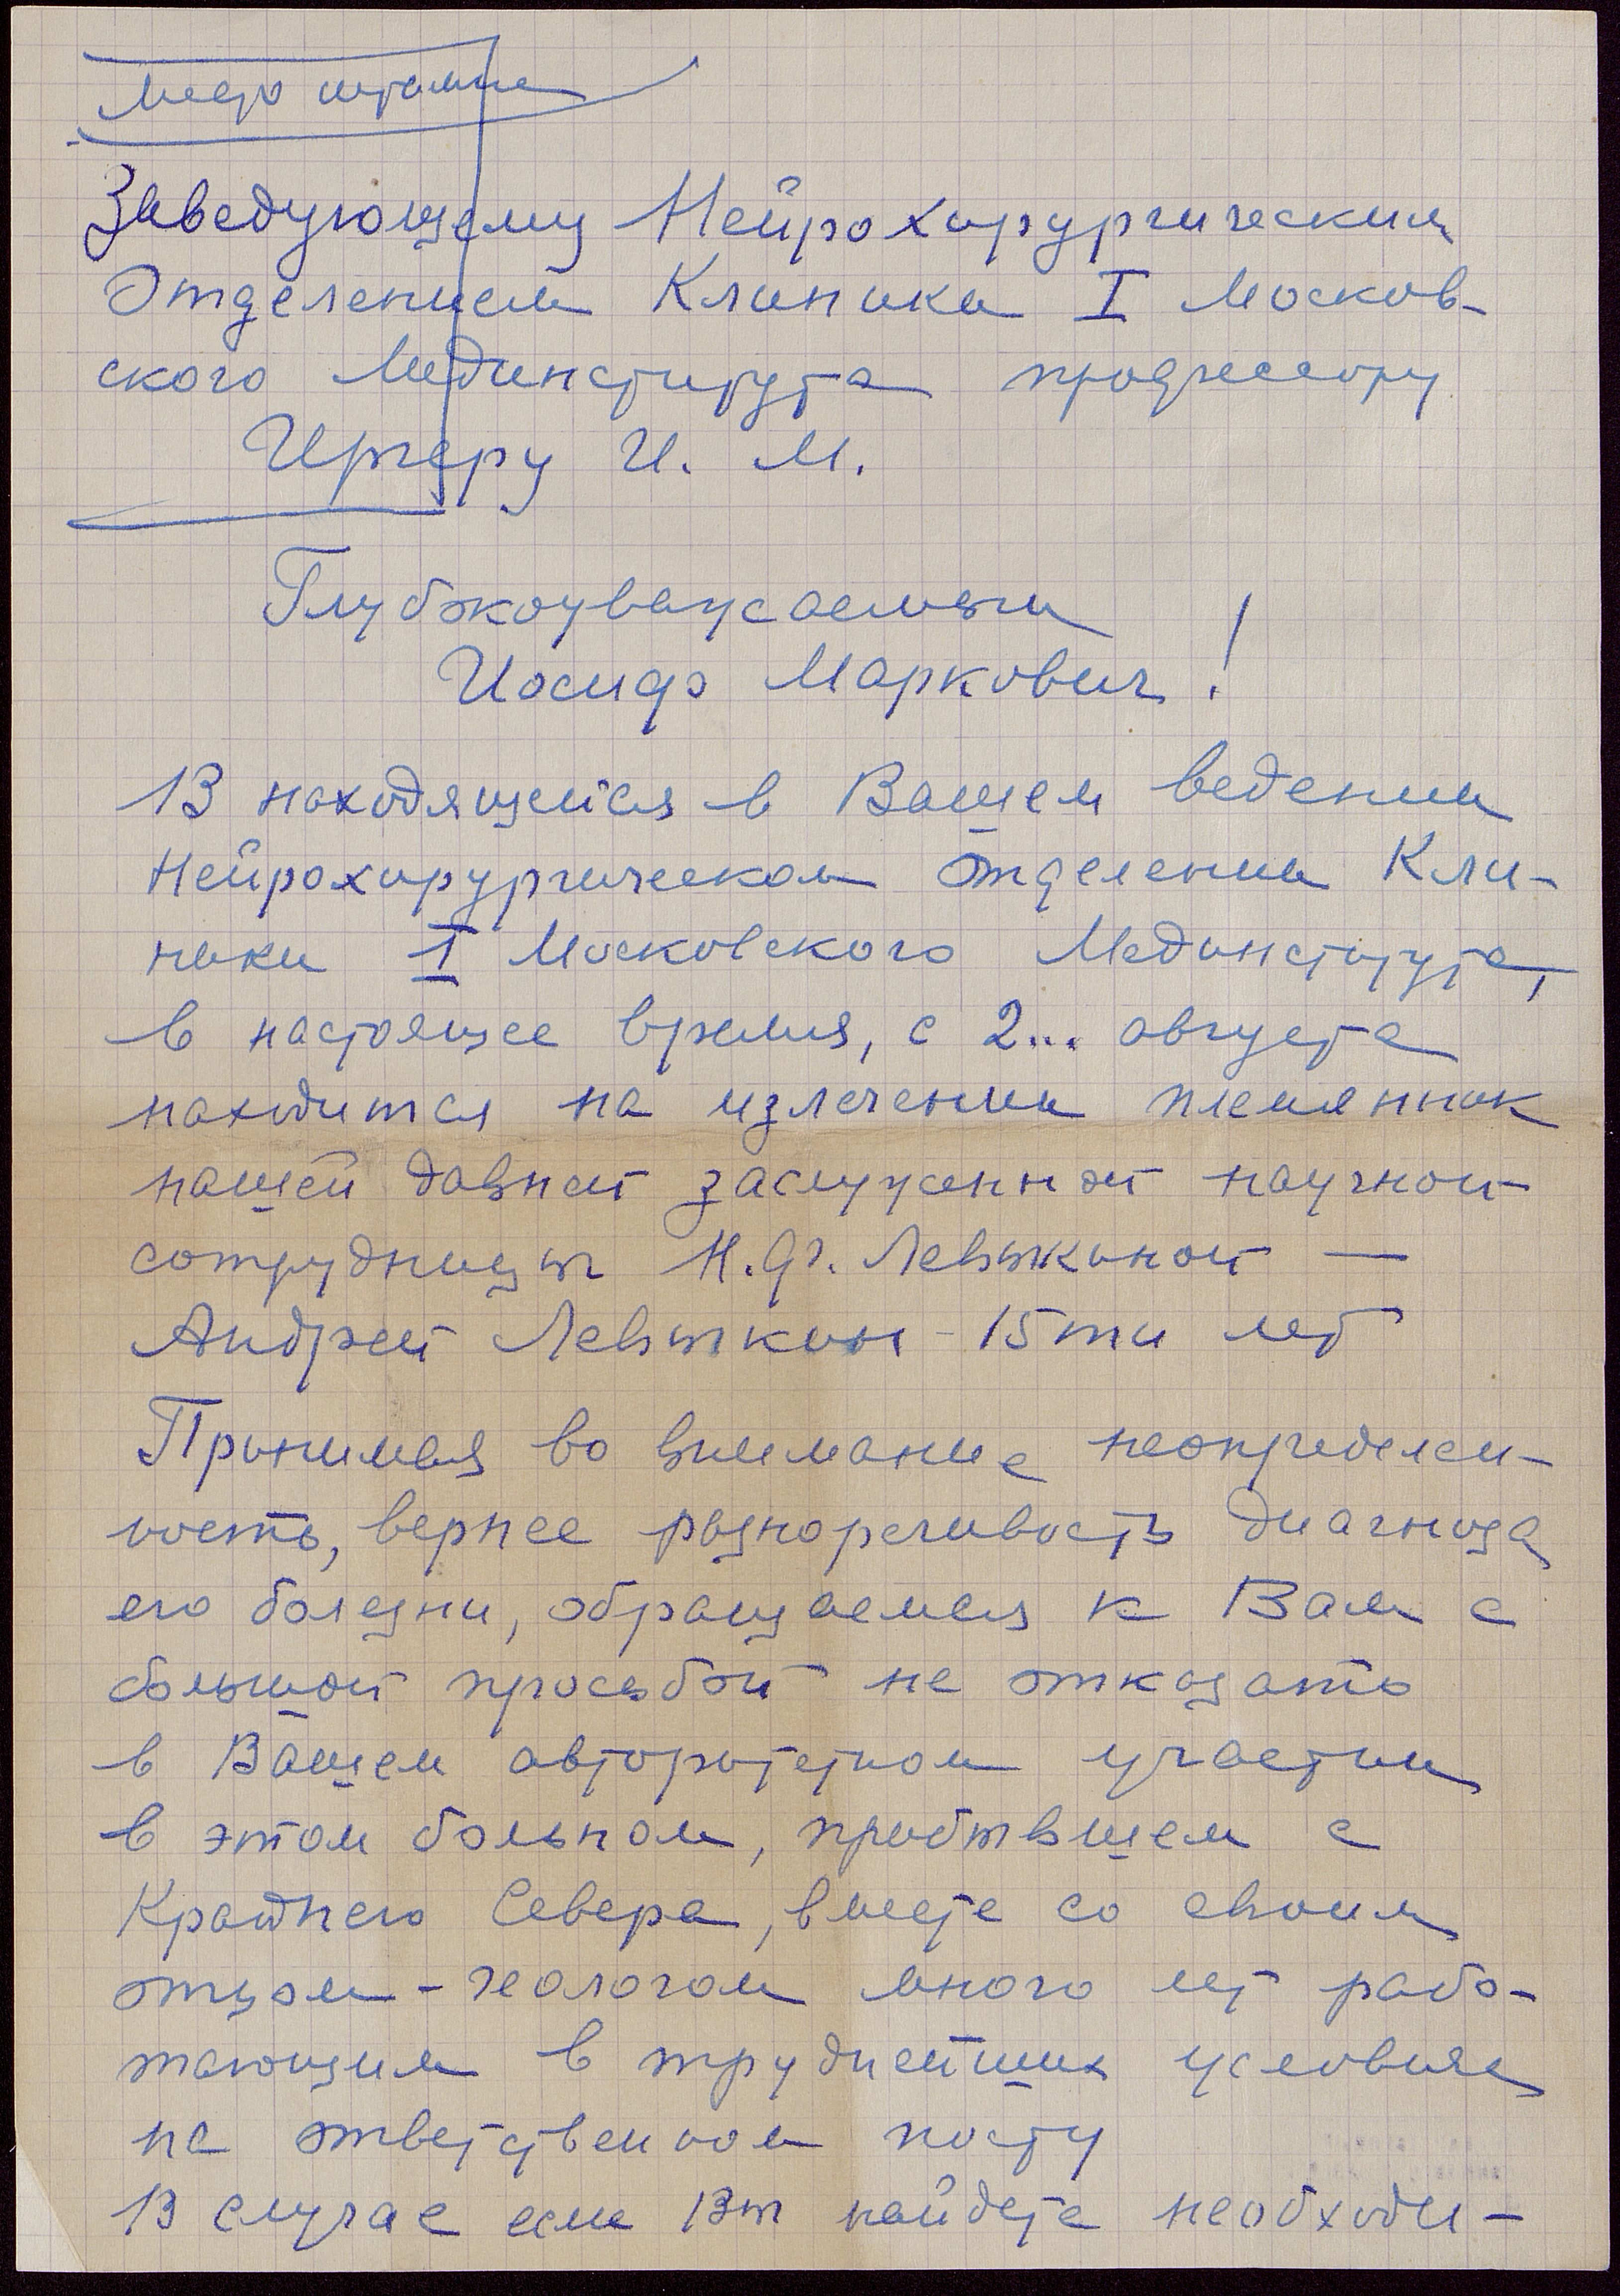 место штампа
Заведующему Нейрохирургическим
Отделением Клиники I Москов-
ского Мединститута профессору
Иргеру И. М.
Глубокоуважаемый
Иосиф Маркович!
В находящейся в Вашем ведении
Нейрохирургическом отделении Кли-
ники I Московского Мединститута,
в настоящее время, с 2... августа
находится на излечении племянник
нашей давней заслуженной научной
сотрудницы Н.Ф. Левыкиной —
Андрей Левыкин - 15ти лет
Принимая во внимание неопределен-
ность, вернее разноречивость диагноза
его болезни, обращаемся к Вам с
большой просьбой не отказать
в Вашем авторитетном участии
в этом больном, прибывшем с
Крайнего Севера, вместе со своим
отцом - геологом много лет рабо-
тающим в труднейших условиях
на ответственном посту
В случае если Вы найдете необходи-